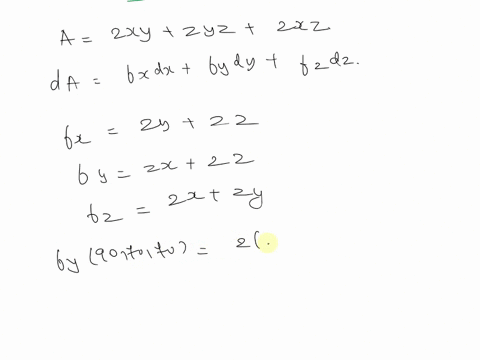 A = 2xy + 2yz + 2xz
dA = fxdx + fydy + fzdz.
fx = 2y + 2z
fy = 2x + 2z
fz = 2x + 2y
fy(90,70,70) = 2(.